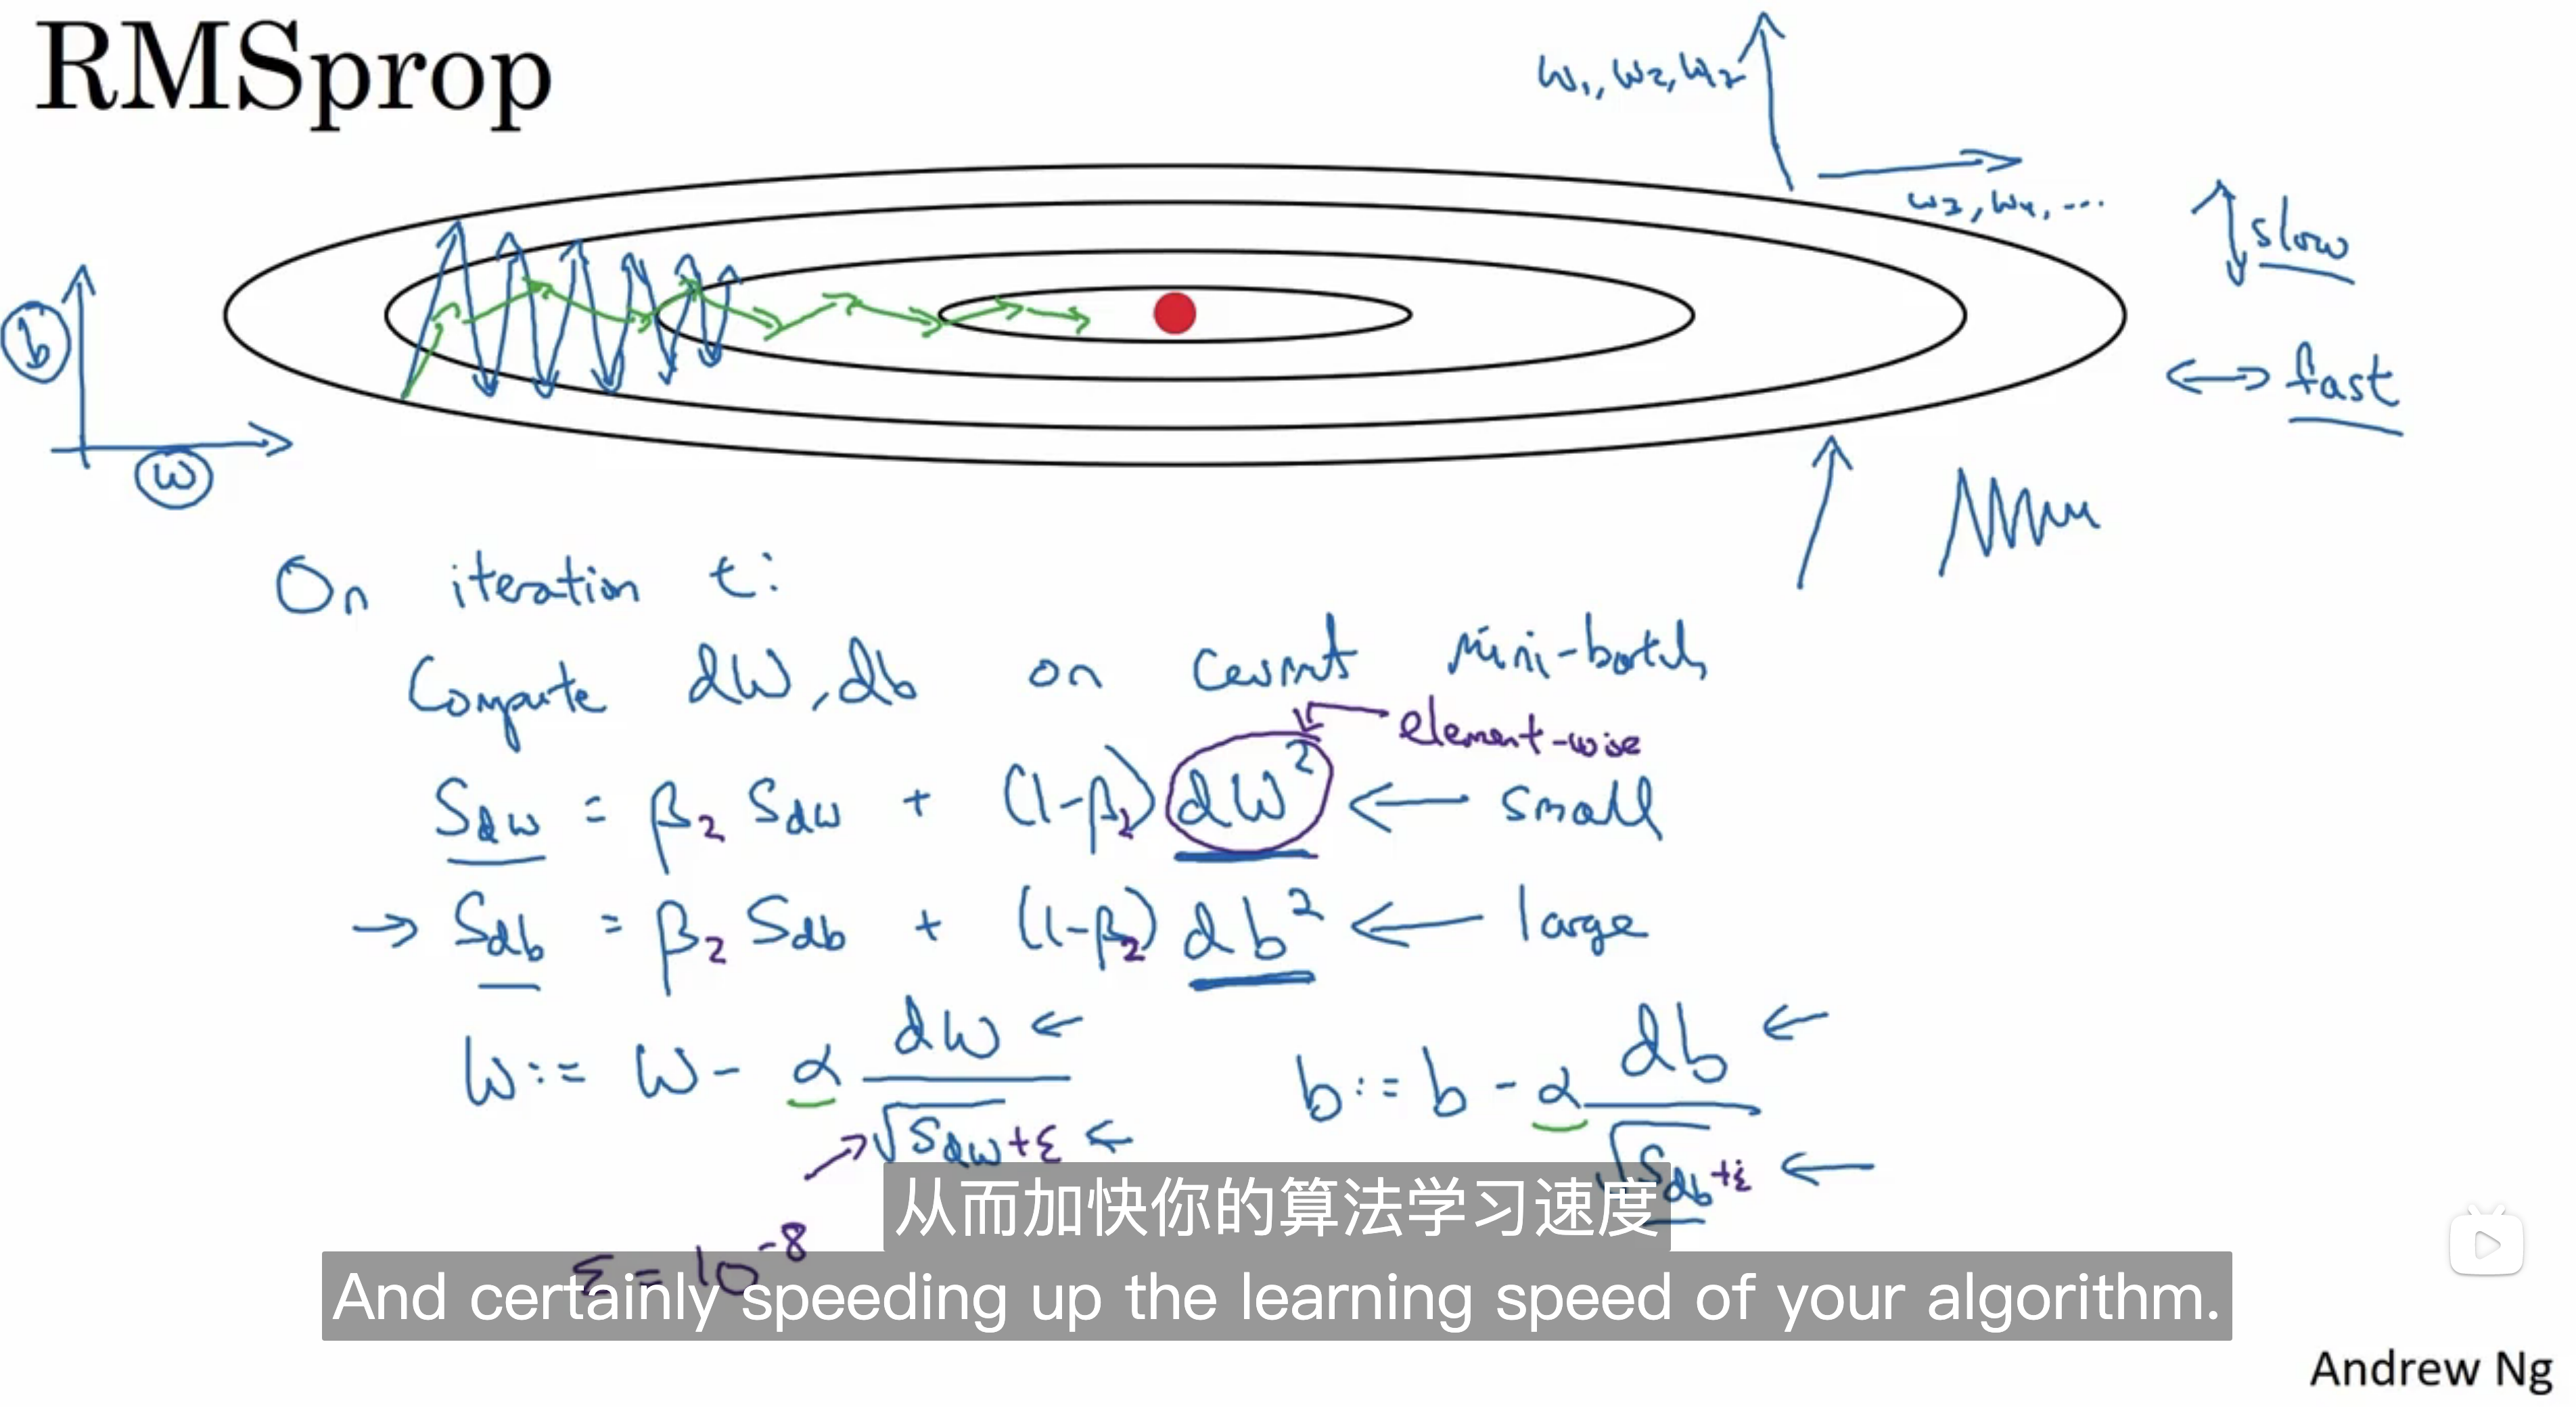 RMSprop
w₁, w₂, w₁₇
w₃, w₄, ...
slow
b
fast
w
On iteration t:
Compute dW, db on current mini-batch
element-wise
S_dw = β₂ S_dw + (1-β₂) dW² ← small
→ S_db = β₂ S_db + (1-β₂) db² ← large
W := W - α dW / √S_dw + ε ←
b := b - α db / √S_db + ε ←
ε = 10⁻⁸
从而加快你的算法学习速度
And certainly speeding up the learning speed of your algorithm.
Andrew Ng